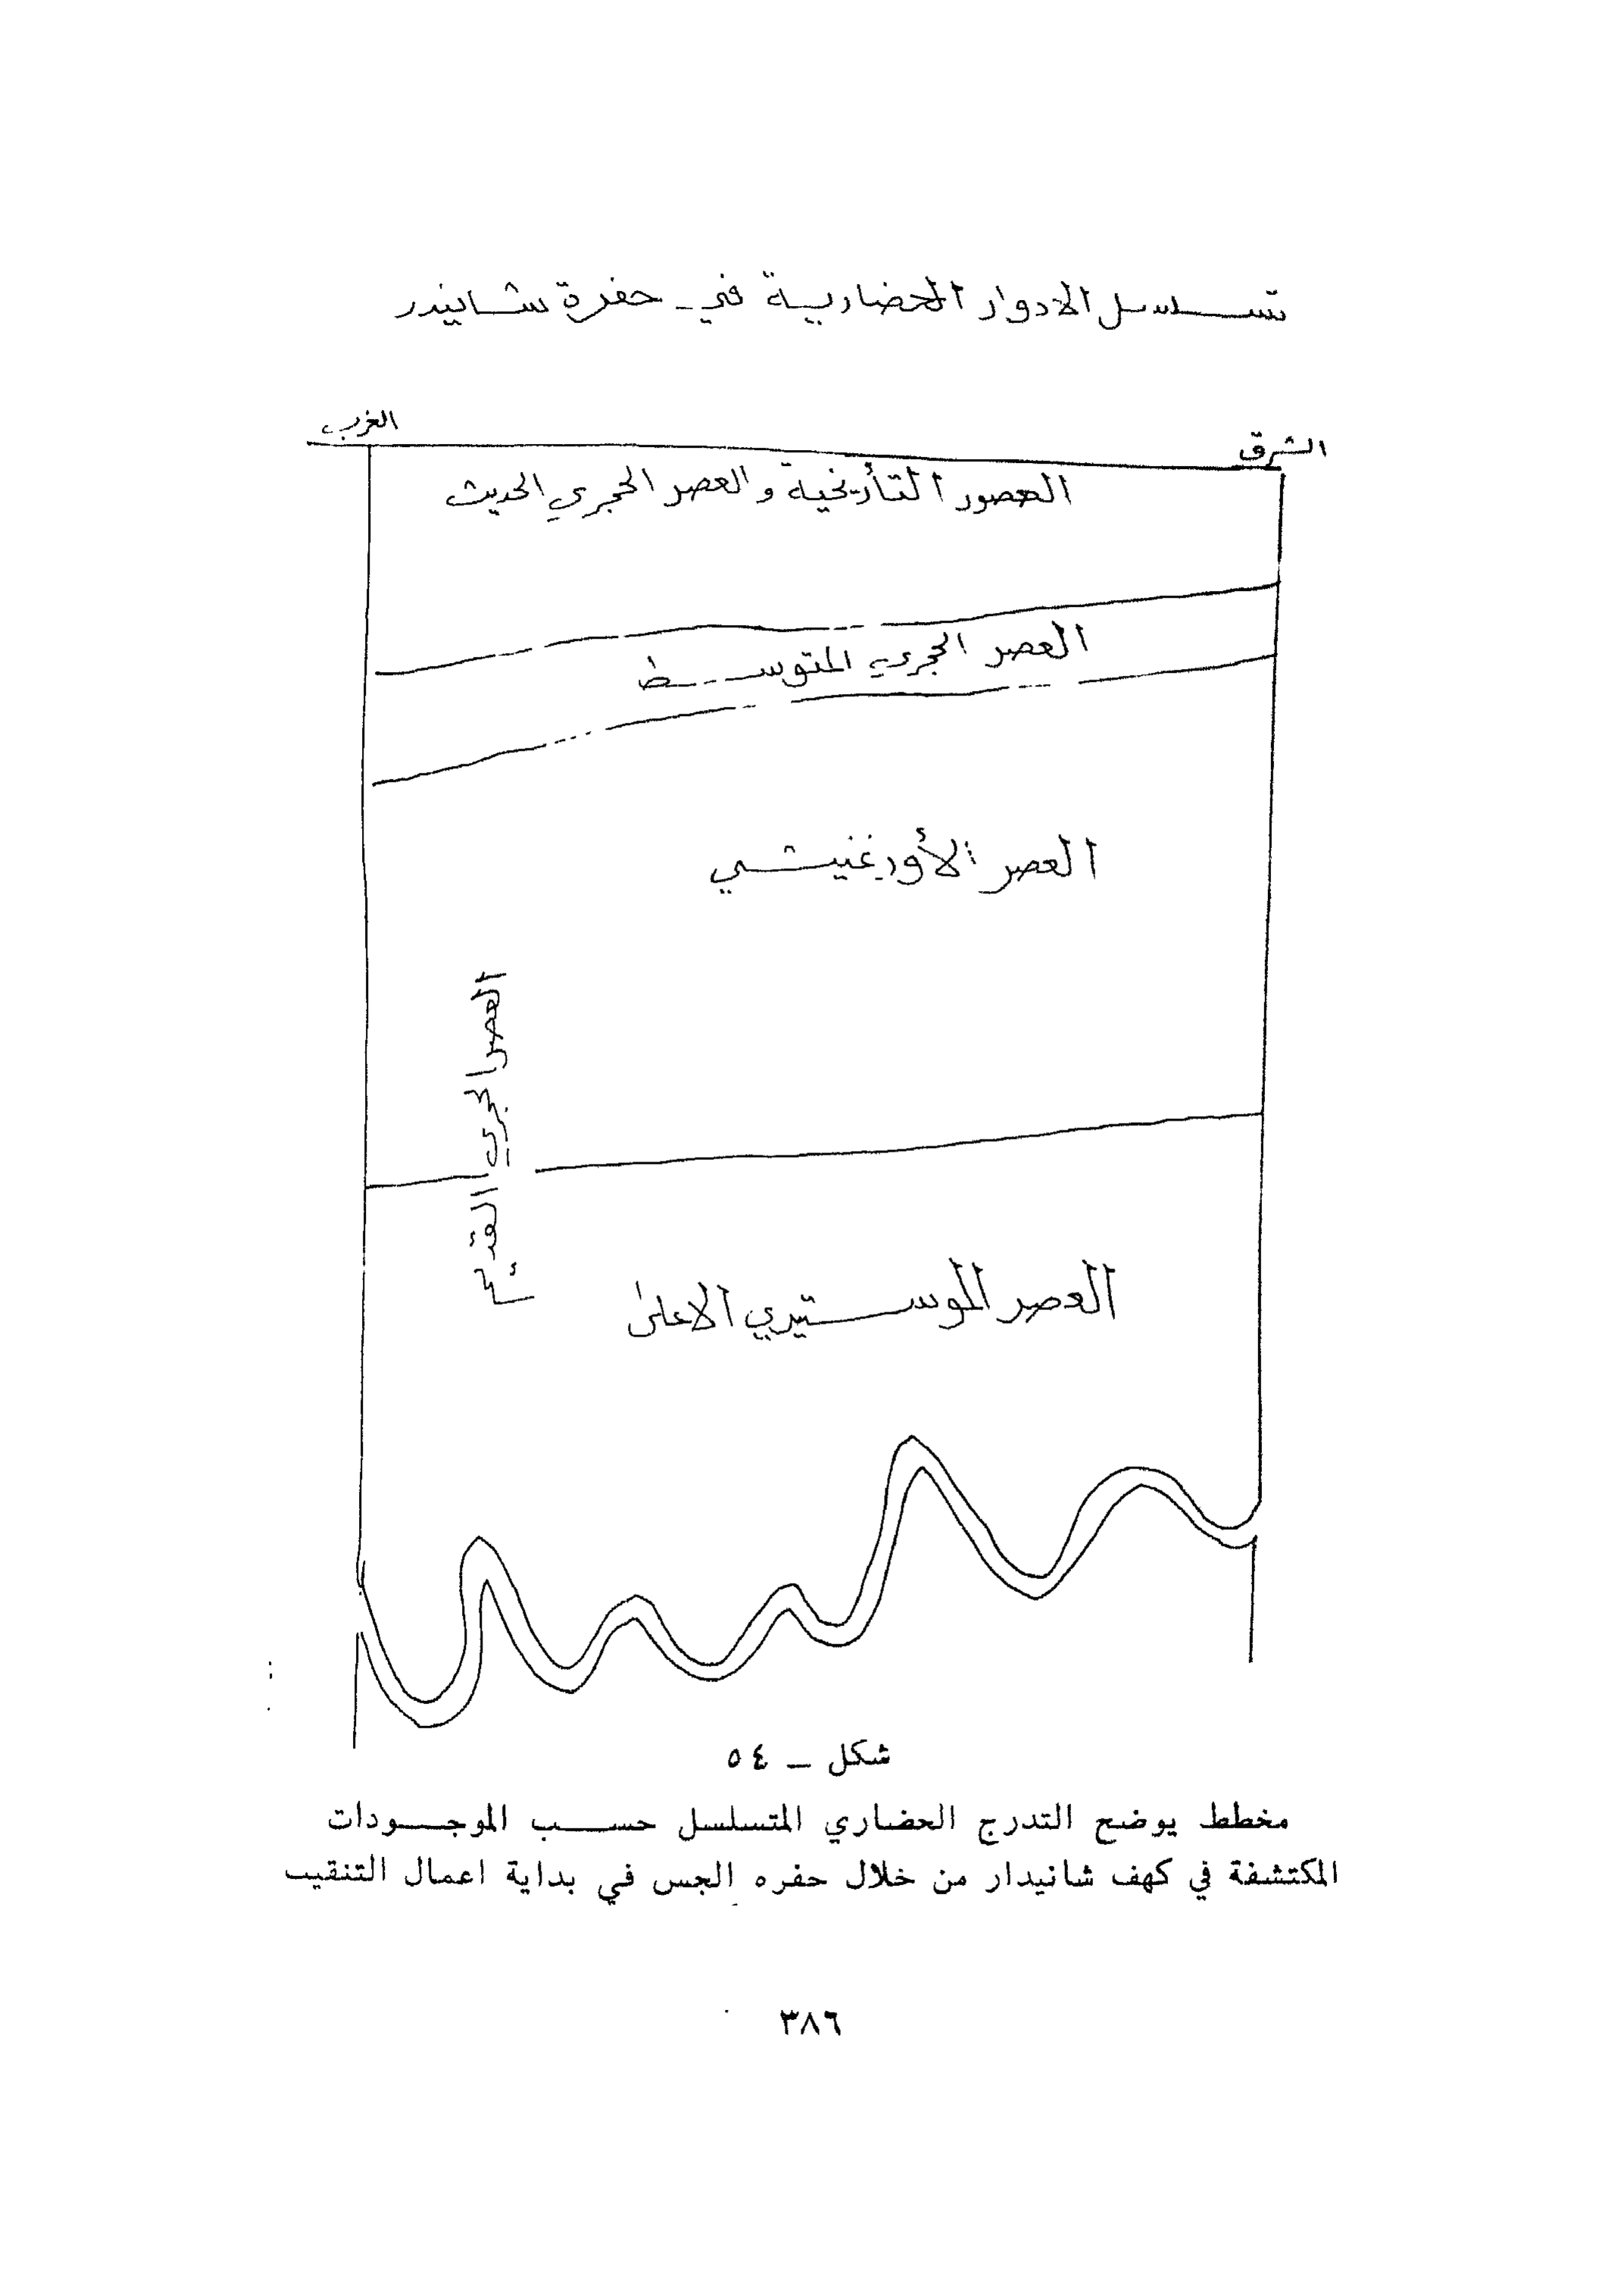 تسلسل الادوار الحضارية في حفرة شانيدر
الغرب
الشرق
العصور التأريخية والعصر الحجري الحديث
العصر الحجري المتوسط
العصر الأورغنيشي
العصر الحجري القديم
العصر الموستيري الاعلى
شكل ــ ٥٤
مخطط يوضح التدرج الحضاري المتسلسل حسب الموجودات
المكتشفة في كهف شانيدار من خلال حفره الجس في بداية اعمال التنقيب
٣٨٦